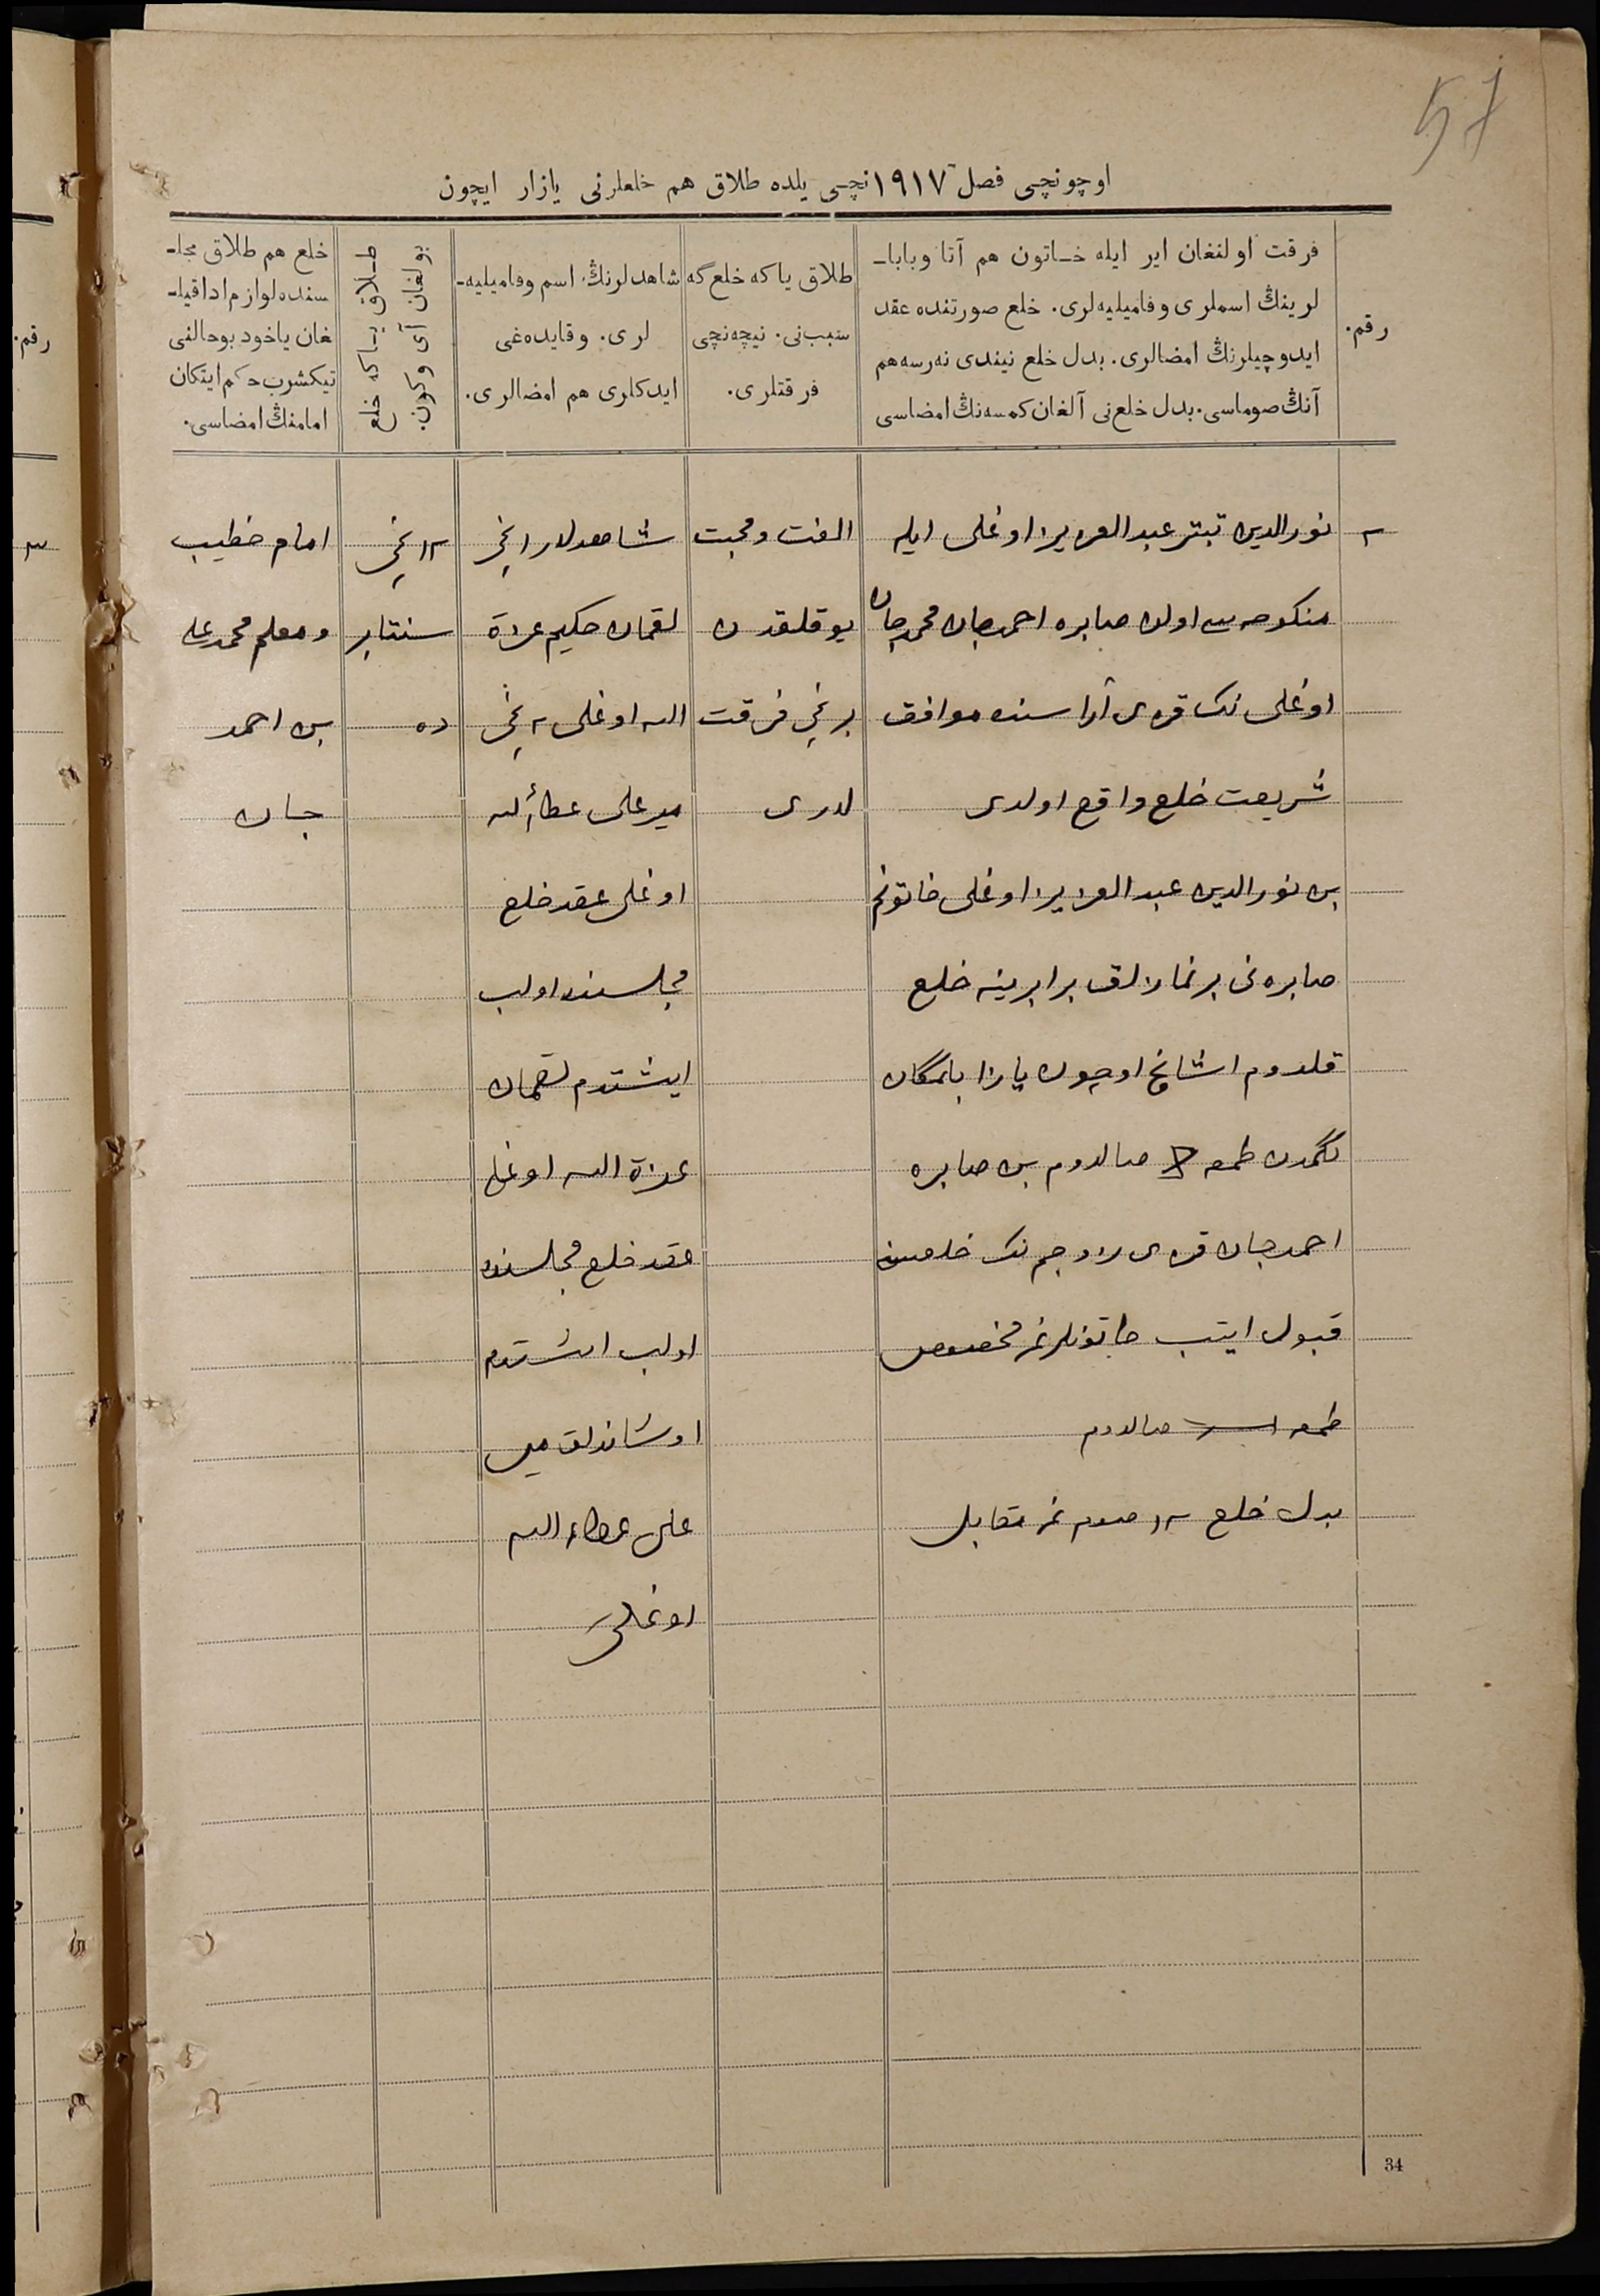 57
اوچونچی فصل ١٩١٧ نچی یلده طلاق هم خلعلرنی یازار ایچون
رقم.
فرقت اولنغان ایر ایله خاتون هم آتا وبابا-
لرینڭ اسملری وفامیلیه‌لری. خلع صورتنده عقد
ایدوچیلرنڭ امضالری. بدل خلع نیندی نه‌رسه هم
آنڭ صوماسی. بدل خلع‌نی آلغان کمسه‌نڭ امضاسی
طلاق یاکه خلع‌گه
سبب‌نی. نیچه‌نچی
فرقتلری.
شاهدلرنڭ اسم وفامیلیه-
لری. وقایده‌غی
ایدکلری هم امضالری.
طلاق یاکه خلع
بولغان آی وکون.
خلع هم طلاق مجا-
سنده لوازم ادا قیلـ
غان یاخود بوحالنی
تیکشرب حکم ایتکان
امامنڭ امضاسی.
٢
نورالدین عبدالعزیز اوغلی ایله
منکوحه‌سی اولان صابره احمدجان محمدجان
اوغلی نک قزی آراسنده موافق
شریعت خلع واقع اولدی
بن نورالدین عبدالعزیز اوغلی خاتونم
صابره‌نی بر نمازلق برابرینه خلع
قلدوم اشانچ اوچون یازا بلمگان
لگمدن طمعه صالدوم بن صابره
احمدجان قزی زوجم نک خلعسنی
قبول ایتب خاتونلرغه مخصوص
طمعه صالدوم
بدل خلع
الفت ومحبت
یوقلقدن
برنچی فرقت
لاری
شاهدلار ١نچی
لقمان حکیم عزة
الله اوغلی ٢نچی
میرعلی عطاءالله
اوغلی عقد خلع
مجلسنده اولب
ایشتدم لقمان
عزة الله اوغلی
عقد خلع مجلسنده
اولب ایشتدم
اوشاندلق میر
علی عطاءالله
اوغلی
١٢نچی
سنتابر
ده
امام خطیب
ومعلم محمدعلی
بن احمد
جان
34
رقم.
٣